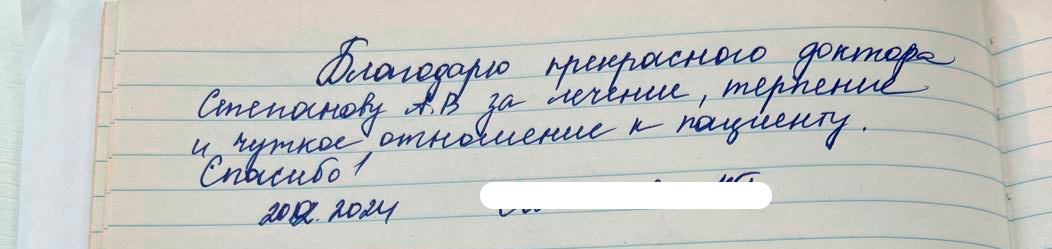 Благодарю прекрасного доктора
Степанову А.В за лечение, терпение
и чуткое отношение к пациенту.
Спасибо!
2024